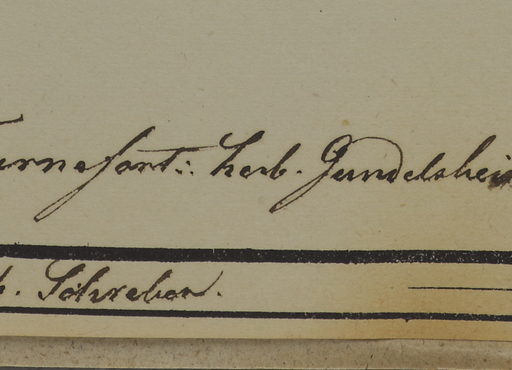 urnefort: herb. Gundelshei
b. Schreber.